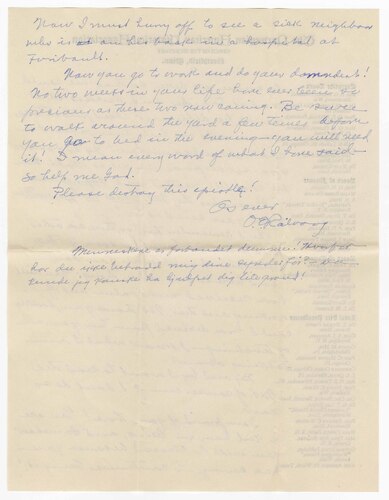 Now I must hurry off to see a sick neighbor
who is on his back in a hospital at
Faribault.
Now you go to work and do your damndest!
No two weeks in your life have ever been so
precious as these two now coming. Be sure
to walk around the yard a few times before
you go to bed in the evening - you will need
it! I mean every word of what I have said -
so help me God.
Please destroy this epistle!
As ever
Menneske
har du ikke betrodd mig dine
kunde jeg kanske ha hjulpet dig litegrand!